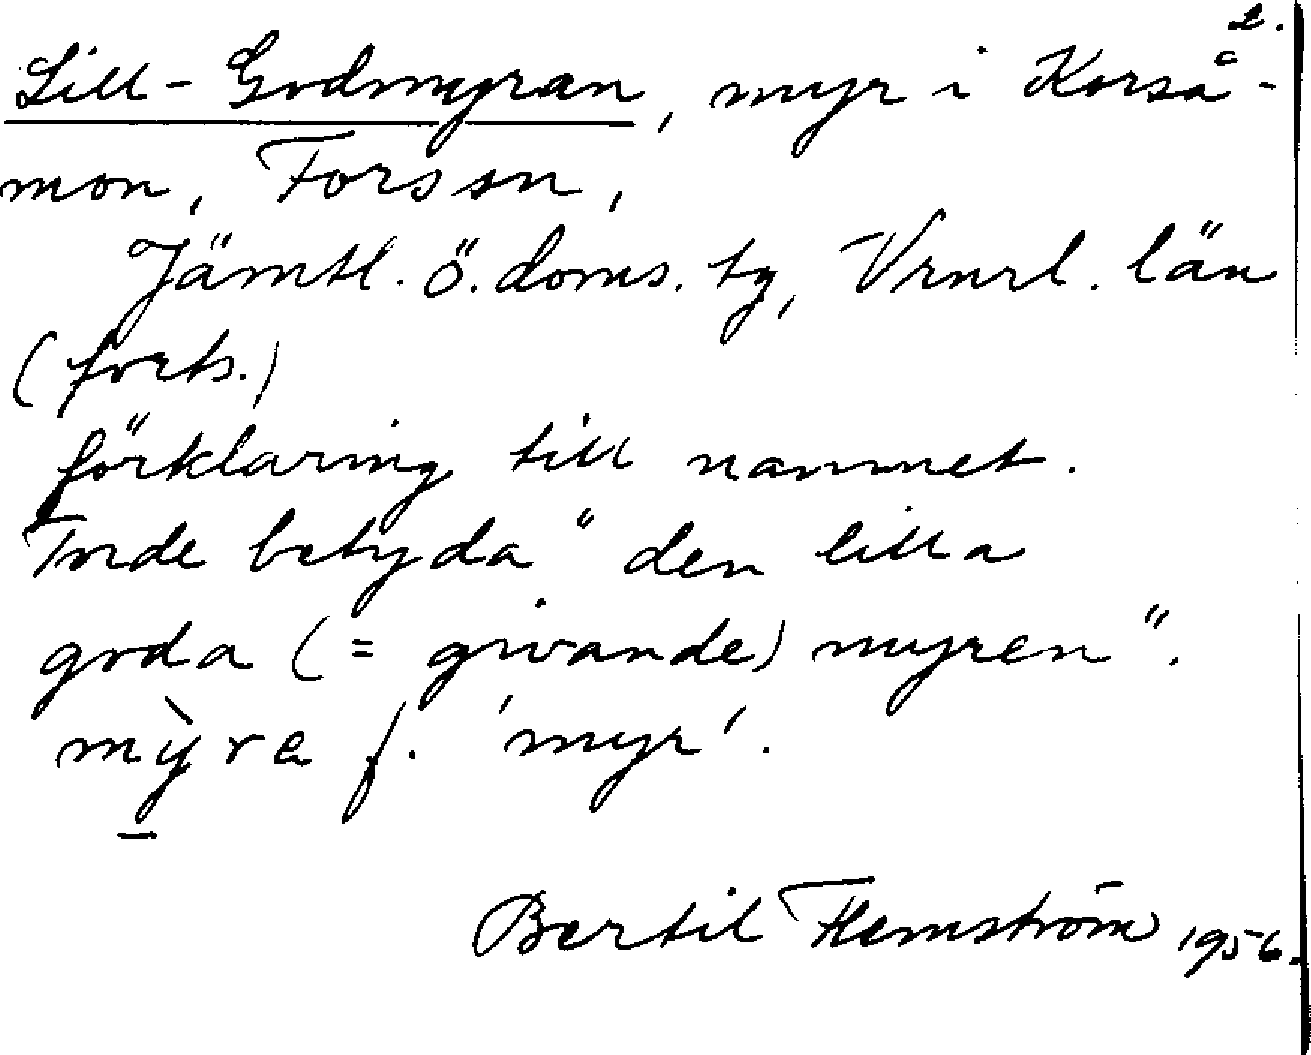 2.
Lill-Godmyran, myr i Korså-
mon, Fors sn,
Jämtl. ö. doms. tg, Vrnrl. län
(forts.)
förklaring till namnet.
Torde betyda "den lilla
goda (= givande) myren".
mỳra f. 'myr'.
Bertil Flemström 1956.